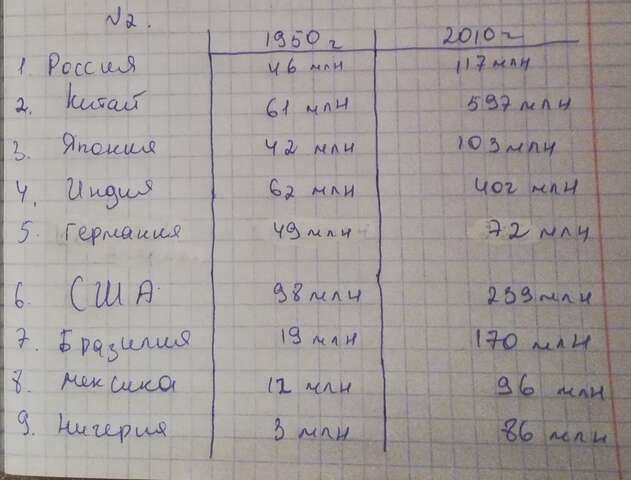 №2.
1950 г 2010 г
1. Россия 46 млн 117 млн
2. Китай 61 млн 597 млн
3. Япония 42 млн 103 млн
4. Индия 62 млн 402 млн
5. Германия 49 млн 72 млн
6. США 98 млн 239 млн
7. Бразилия 19 млн 170 млн
8. Мексика 12 млн 96 млн
9. Нигерия 3 млн 86 млн